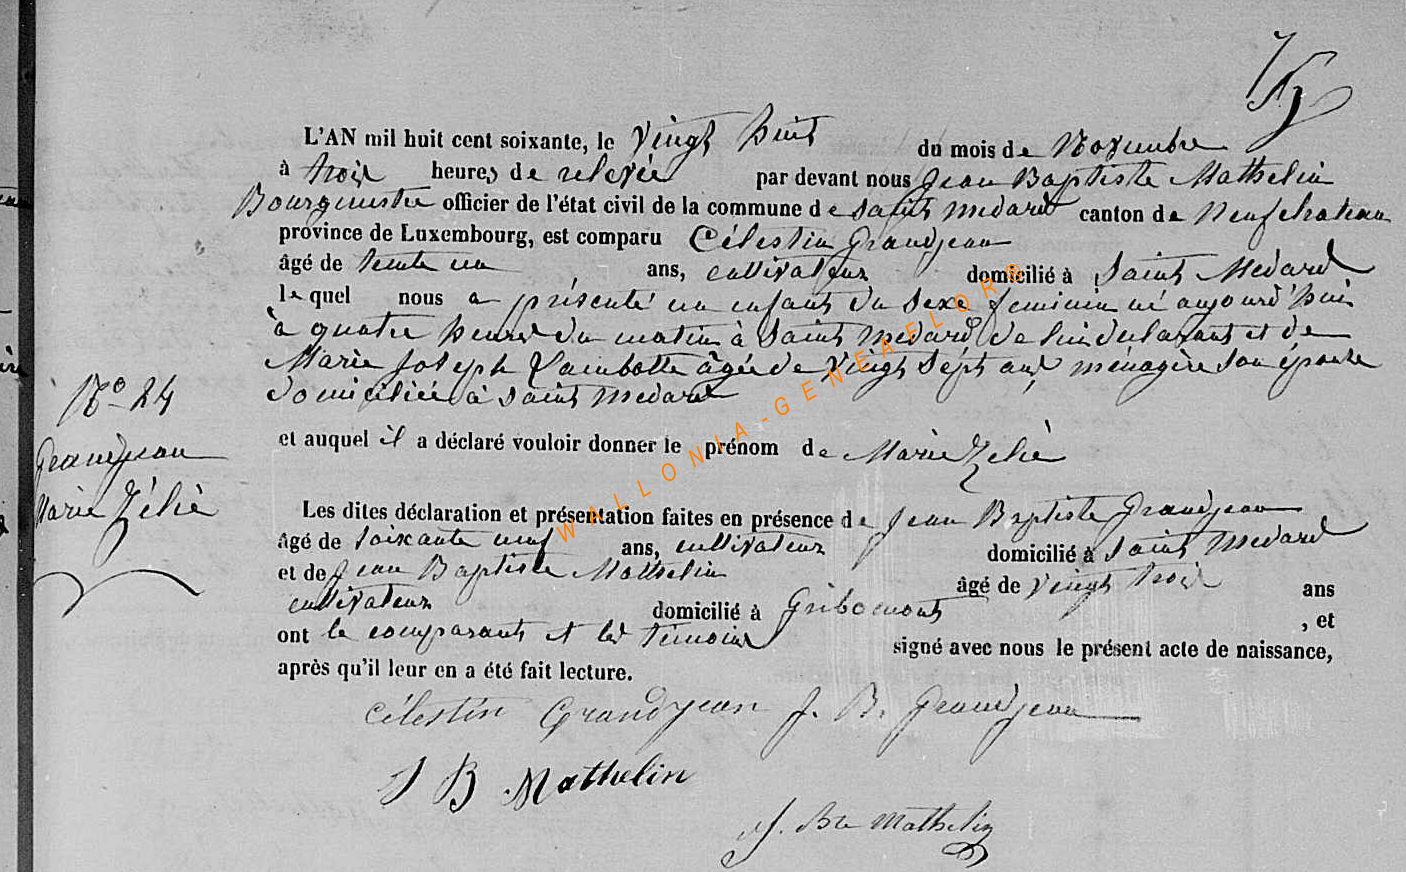 L'AN mil huit cent soixante, le vingt huit du mois de Novembre
à trois heures de relevée par devant nous Jean Baptiste Mathelin
Bourgmestre officier de l'état civil de la commune de Saint Médard canton de Neufchateau
province de Luxembourg, est comparu Célestin Grandjean
âgé de trente un ans, cultivateur domicilié à Saint Médard
lequel nous a présenté un enfant du sexe feminin né aujourd'hui
à quatre heures du matin à Saint Médard de lui déclarant et de
Marie Joseph Lambotte âgée de vingt sept ans ménagère son épouse
domiciliée à Saint Médard
N° 24
Grandjean
Marie Zélie
et auquel il a déclaré vouloir donner le prénom de Marie Zelie
Les dites déclaration et présentation faites en présence de Jean Baptiste Grandjean
âgé de soixante neuf ans, cultivateur domicilié à Saint Médard
et de Jean Baptiste Mathelin âgé de vingt trois ans
cultivateur domicilié à Gribomont , et
ont le comparant et les témoins signé avec nous le présent acte de naissance,
après qu'il leur en a été fait lecture.
Célestin Grandjean J. B. Grandjean
J B Mathelin
J. Bte Mathelin
WALLONIA-GENEAFLORE